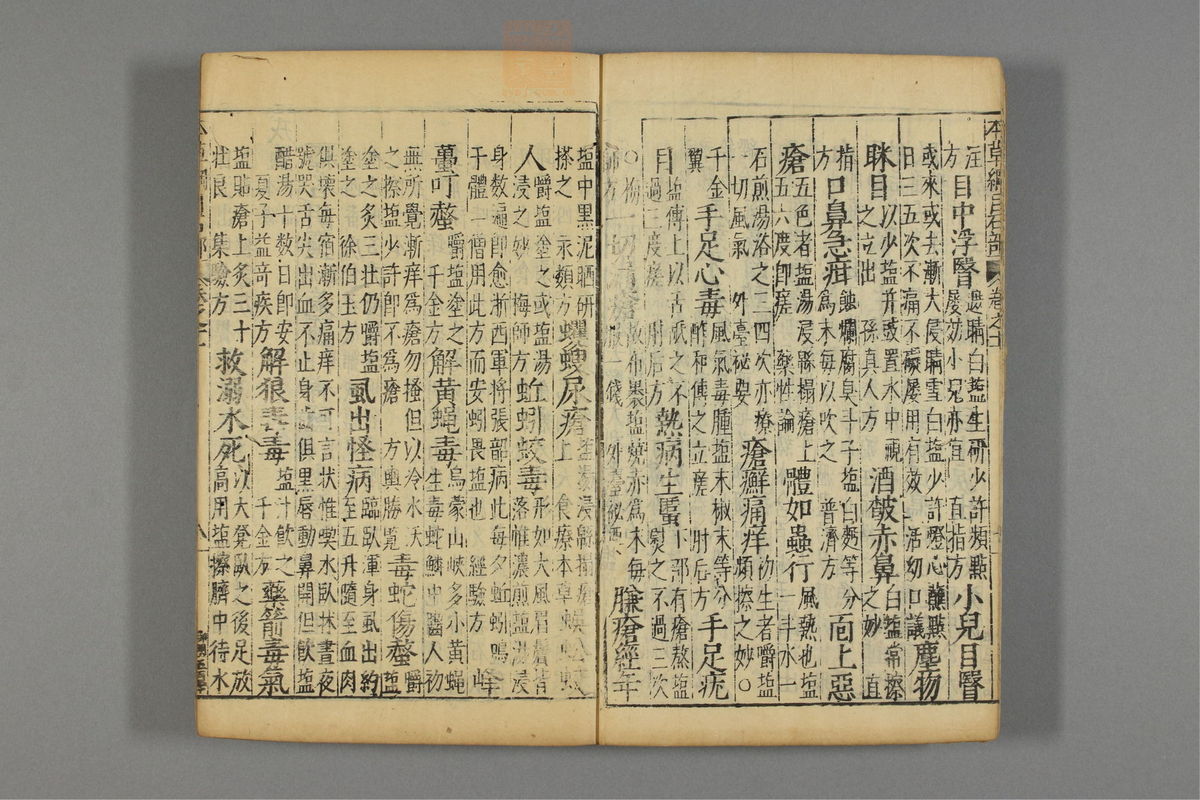 本草綱目石部 卷之十一
方 目中浮瞖 遮睛白鹽生研少許頻點屢効小兒亦宜 直指方 小兒目瞖
或來或去漸大侵睛雪白鹽少許燈心蘸點日三五次不痛不礙屢用有效 活幼口議 塵物
眯目 以少鹽并豉置水中視之立出 孫真人方 酒皶赤鼻 白鹽常擦之妙 直
指方 口鼻急疳 蝕爛腐臭斗子鹽白麪等分為末每以吹之 普濟方 面上惡
瘡 五色者鹽湯浸綿搨瘡上五六度即瘥 藥性論 體如蟲行 風熱也鹽一斗水一
石煎湯浴之三四次亦療一切風氣 外臺秘要 瘡癬痛痒 初生者嚼鹽頻擦之妙○
千金翼 手足心毒 風氣毒腫鹽末椒末等分酢和傅之立瘥 肘后方 手足疣
目 鹽傅上以舌䑛之不過三度瘥 肘后方 熱病生䘌 下部有瘡熬鹽熨之不過三次
臁瘡經年
鹽中黑泥晒研搽之 永類方 蠼螋尿瘡 鹽湯浸綿搨瘡上 食療本草
人 嚼鹽塗之或鹽湯浸之妙 梅師方 蚯蚓蛟毒 形如大風眉鬢皆落惟濃煎鹽湯浸
身數遍即愈浙西軍將張韶病此每夕蚯蚓鳴于體一僧用此方而安蚓畏鹽也 經驗方 蜂
蠆叮螫 嚼鹽塗之 千金方 解黄蠅毒 烏蒙山峽多小黄蠅生毒蛇鱗中嚙人初
無所覺漸痒為瘡勿搔但以冷水沃之擦鹽少許即不為瘡 方輿勝覽 毒蛇傷螫 嚼鹽
塗之炙三壮仍嚼鹽塗之 徐伯玉方 虱出怪病 臨臥渾身虱出約至五升隨至血肉
俱壞每宿漸多痛痒不可言状惟喫水臥牀晝夜號哭舌尖出血不止身齒俱黑唇動鼻開但飲鹽
醋湯十数日即安 夏子益奇疾方 解狼毒毒 鹽汁飲之 千金方 藥箭毒氣
鹽貼瘡上炙三十壮良 集驗方 救溺水死 以大凳臥之後足放高用鹽擦臍中待水